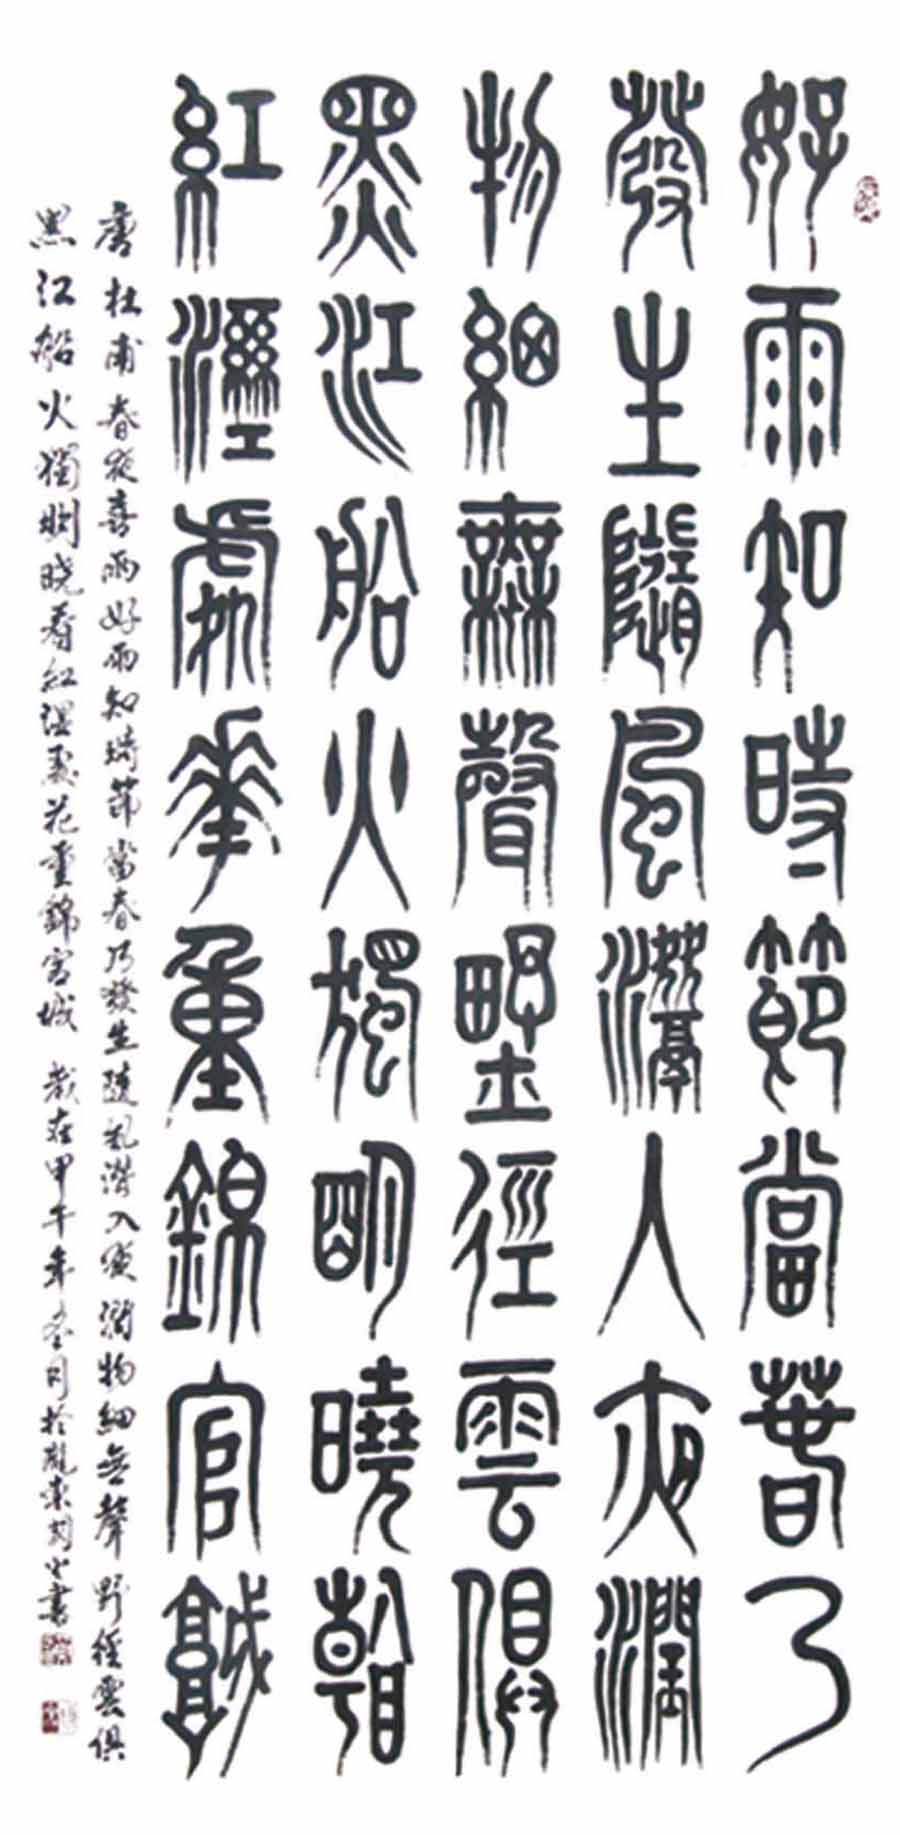 好雨知時節當春乃
發生隨風潛入夜潤
物細無聲野徑雲俱
黑江船火獨明曉看
紅溼處華重錦官城
唐杜甫春夜喜雨好雨知時節當春乃發生隨風潛入夜潤物細無聲野徑雲俱
黑江船火獨明曉看紅濕處花重錦官城 歲在甲午年冬月於 書